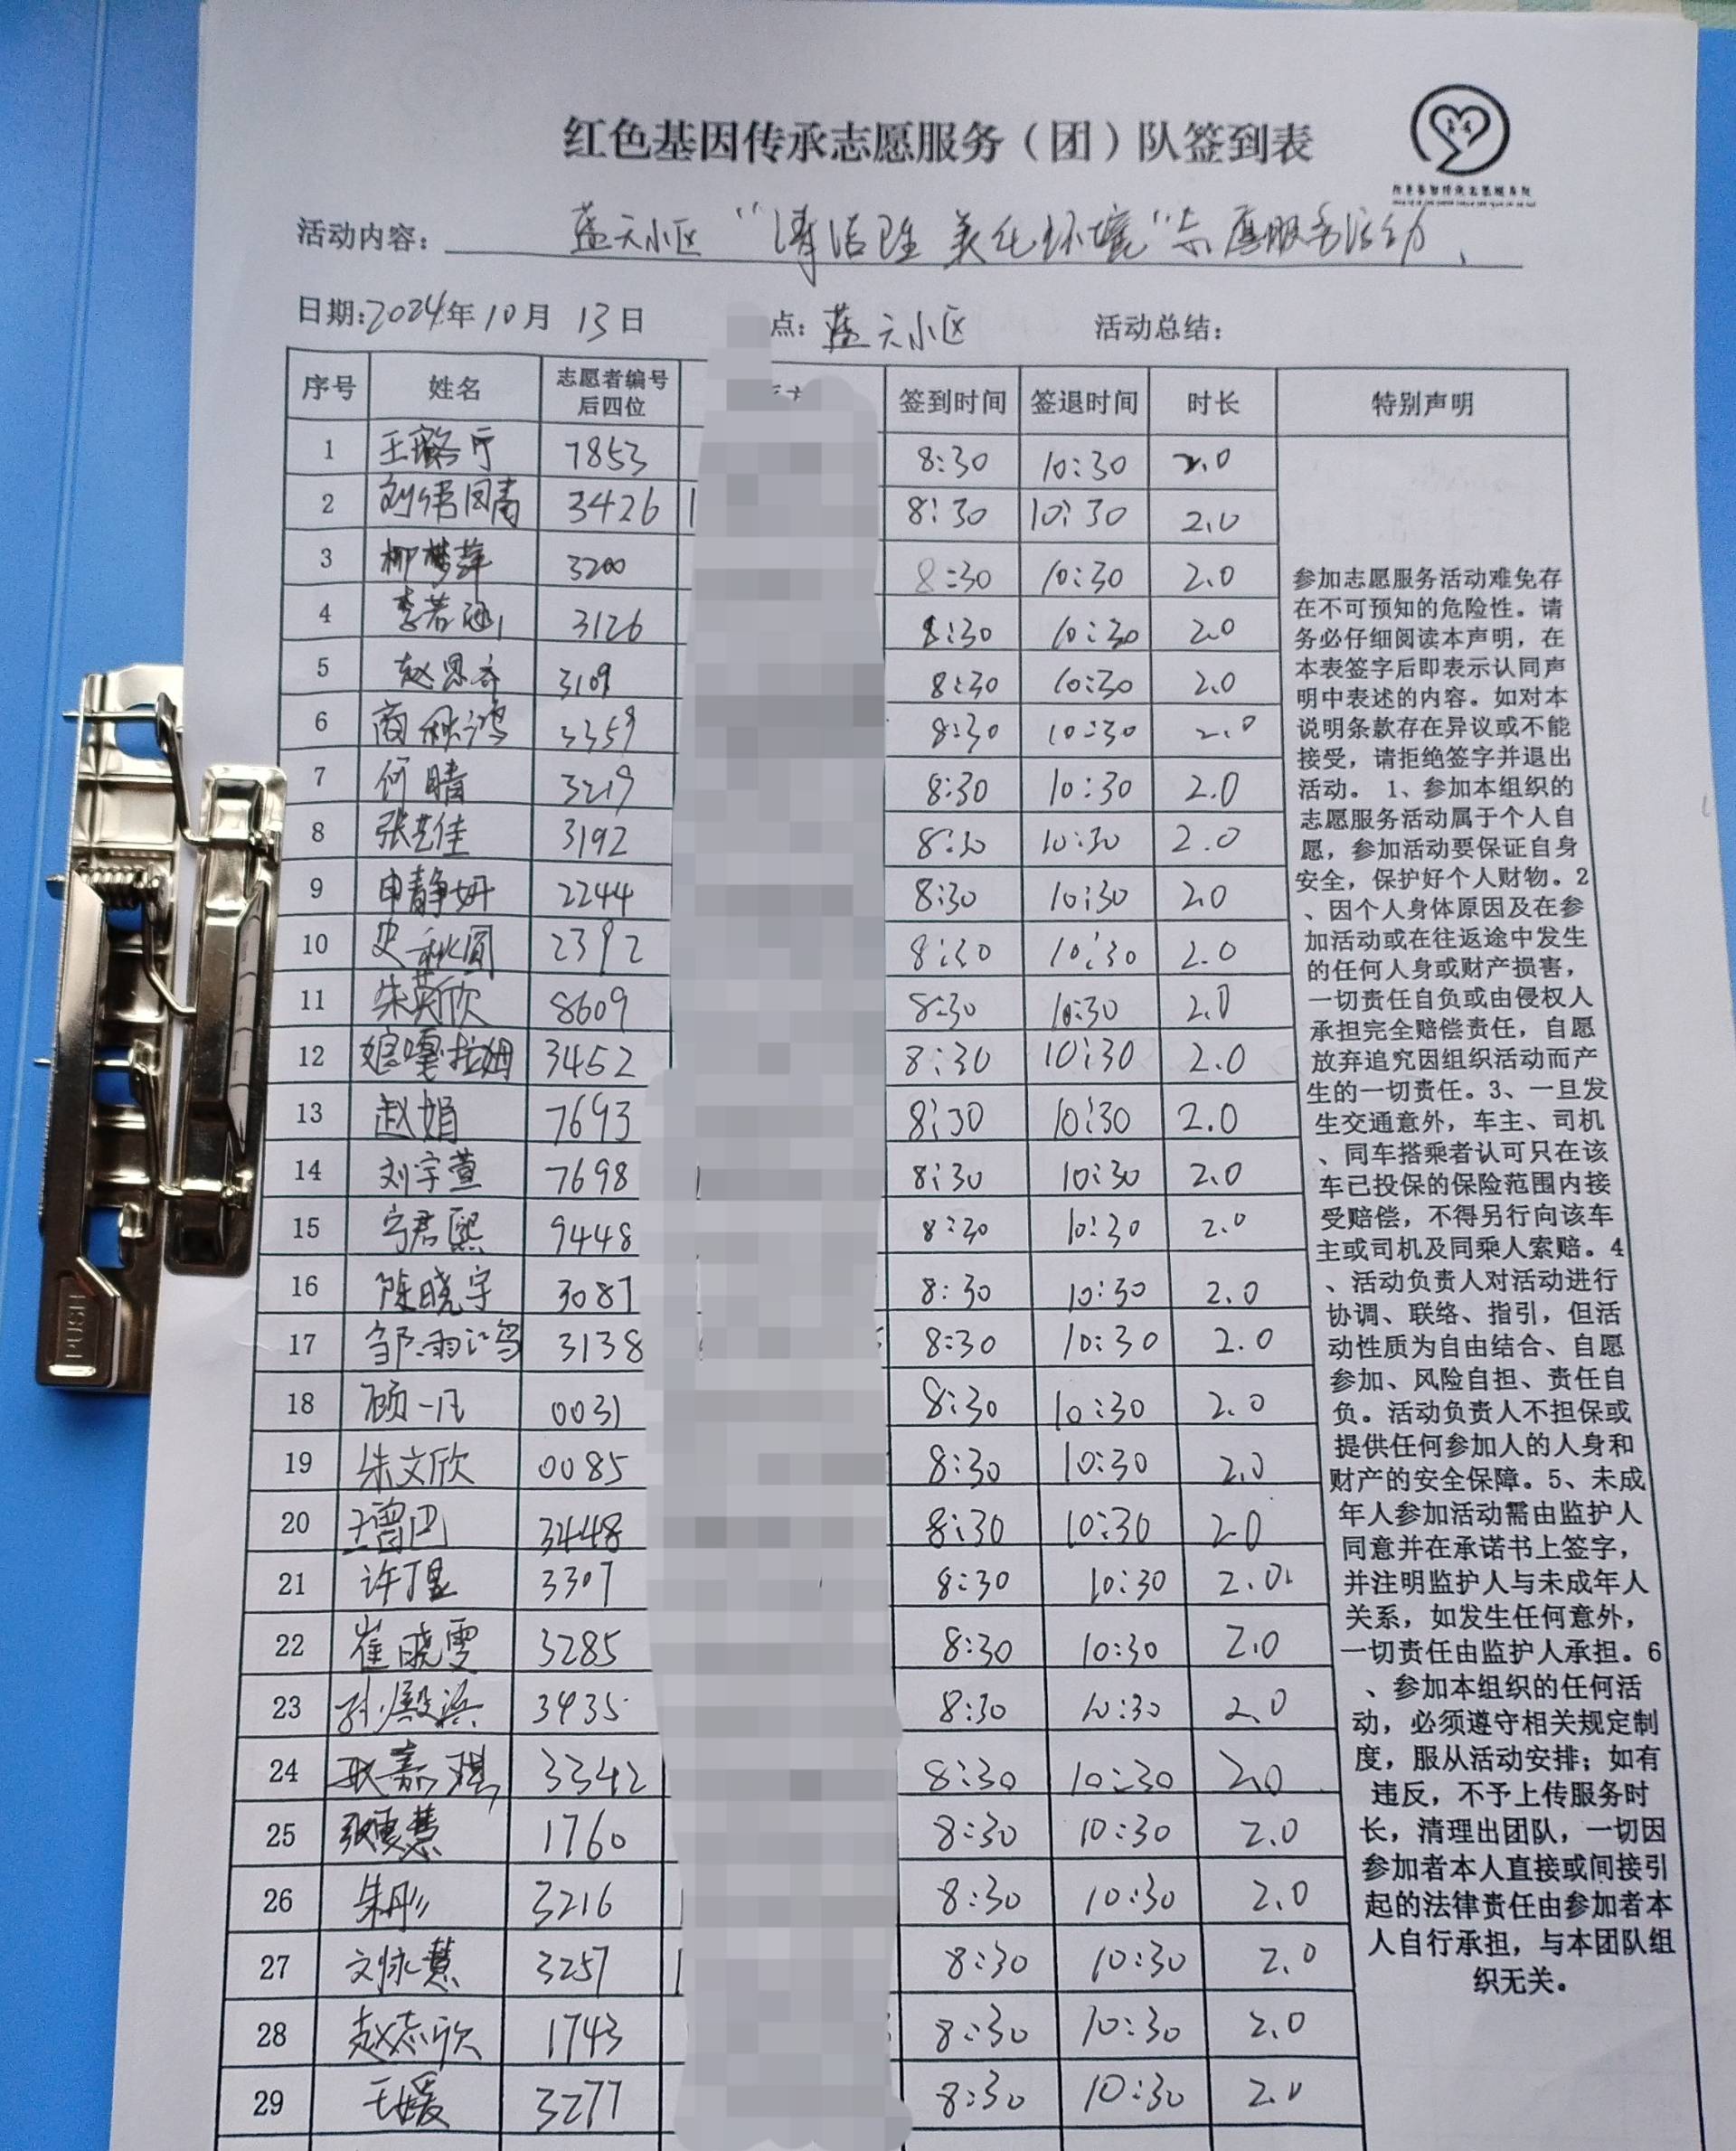 红色基因传承志愿服务（团）队签到表
活动内容：蓝天小区“清洁卫生 美化环境”志愿服务活动、
日期:2024年10月13日 点：蓝天小区 活动总结：
序号 姓名 志愿者编号后四位 签到时间 签退时间 时长 特别声明
1 王 7853 8:30 10:30 2.0
2 刘 3426 8:30 10:30 2.0
3 柳梦萍 3200 8:30 10:30 2.0
4 李若涵 3126 8:30 10:30 2.0
5 赵思齐 3109 8:30 10:30 2.0
6 商秋鸿 3359 8:30 10:30 2.0
7 何晴 3219 8:30 10:30 2.0
8 张艺佳 3192 8:30 10:30 2.0
9 申静妍 2244 8:30 10:30 2.0
10 史秋圆 2392 8:30 10:30 2.0
11 朱英欣 8609 8:30 10:30 2.0
12 嘎拉姆 3452 8:30 10:30 2.0
13 赵娟 7693 8:30 10:30 2.0
14 刘宇萱 7698 8:30 10:30 2.0
15 宁君熙 9448 8:30 10:30 2.0
16 陈晓宇 3087 8:30 10:30 2.0
17 邹雨 3138 8:30 10:30 2.0
18 顾一凡 0031 8:30 10:30 2.0
19 朱文欣 0085 8:30 10:30 2.0
20 王曾巴 3448 8:30 10:30 2.0
21 许 3307 8:30 10:30 2.0
22 崔晓雯 3285 8:30 10:30 2.0
23 孙殿滨 3435 8:30 10:30 2.0
24 耿嘉琪 3342 8:30 10:30 2.0
25 张惠慧 1760 8:30 10:30 2.0
26 朱彤 3216 8:30 10:30 2.0
27 文咏慧 3257 8:30 10:30 2.0
28 赵志欣 1743 8:30 10:30 2.0
29 王媛 3277 8:30 10:30 2.0
参加志愿服务活动难免存
在不可预知的危险性。请
务必仔细阅读本声明，在
本表签字后即表示认同声
明中表述的内容。如对本
说明条款存在异议或不能
接受，请拒绝签字并退出
活动。 1、参加本组织的
志愿服务活动属于个人自
愿，参加活动要保证自身
安全，保护好个人财物。2
、因个人身体原因及在参
加活动或在往返途中发生
的任何人身或财产损害，
一切责任自负或由侵权人
承担完全赔偿责任，自愿
放弃追究因组织活动而产
生的一切责任。3、一旦发
生交通意外，车主、司机
、同车搭乘者认可只在该
车已投保的保险范围内接
受赔偿，不得另行向该车
主或司机及同乘人索赔。4
、活动负责人对活动进行
协调、联络、指引，但活
动性质为自由结合、自愿
参加、风险自担、责任自
负。活动负责人不担保或
提供任何参加人的人身和
财产的安全保障。5、未成
年人参加活动需由监护人
同意并在承诺书上签字，
并注明监护人与未成年人
关系，如发生任何意外，
一切责任由监护人承担。6
、参加本组织的任何活
动，必须遵守相关规定制
度，服从活动安排；如有
违反，不予上传服务时
长，清理出团队，一切因
参加者本人直接或间接引
起的法律责任由参加者本
人自行承担，与本团队组
织无关。
PUSH